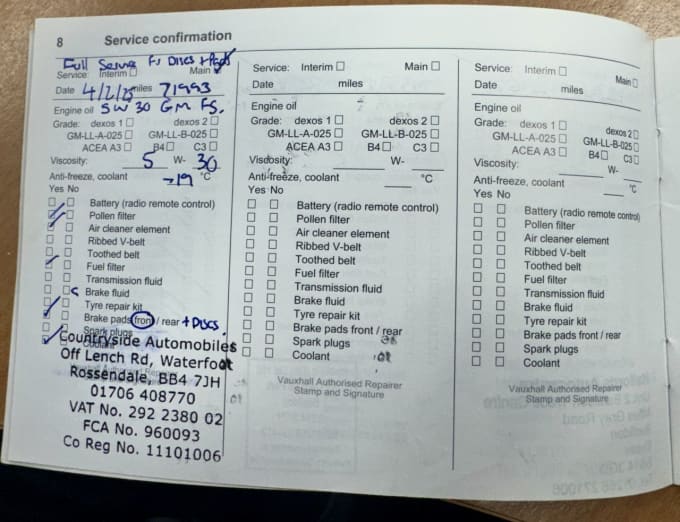 8 Service confirmation
Full Service Fr Discs + Pads
Service: Interim Main
Date 4/2/25 miles 71993
Engine oil 5W30 GM FS.
Grade: dexos 1 dexos 2
GM-LL-A-025 GM-LL-B-025
ACEA A3 B4 C3
Viscosity: 5 W- 30
Anti-freeze, coolant -19 °C
Yes No
Battery (radio remote control)
Pollen filter
Air cleaner element
Ribbed V-belt
Toothed belt
Fuel filter
Transmission fluid
Brake fluid
Tyre repair kit
Brake pads front / rear + DISCS.
Spark plugs
Coolant
Countryside Automobiles
Off Lench Rd, Waterfoot
Rossendale, BB4 7JH
01706 408770
VAT No. 292 2380 02
FCA No. 960093
Co Reg No. 11101006
Service: Interim Main
Date miles
Engine oil
Grade: dexos 1 dexos 2
GM-LL-A-025 GM-LL-B-025
ACEA A3 B4 C3
Viscosity: W-
Anti-freeze, coolant °C
Yes No
Battery (radio remote control)
Pollen filter
Air cleaner element
Ribbed V-belt
Toothed belt
Fuel filter
Transmission fluid
Brake fluid
Tyre repair kit
Brake pads front / rear
Spark plugs
Coolant
Vauxhall Authorised Repairer
Stamp and Signature
Service: Interim Main
Date miles
Engine oil
Grade: dexos 1 dexos 2
GM-LL-A-025 GM-LL-B-025
ACEA A3 B4 C3
Viscosity: W-
Anti-freeze, coolant °C
Yes No
Battery (radio remote control)
Pollen filter
Air cleaner element
Ribbed V-belt
Toothed belt
Fuel filter
Transmission fluid
Brake fluid
Tyre repair kit
Brake pads front / rear
Spark plugs
Coolant
Vauxhall Authorised Repairer
Stamp and Signature